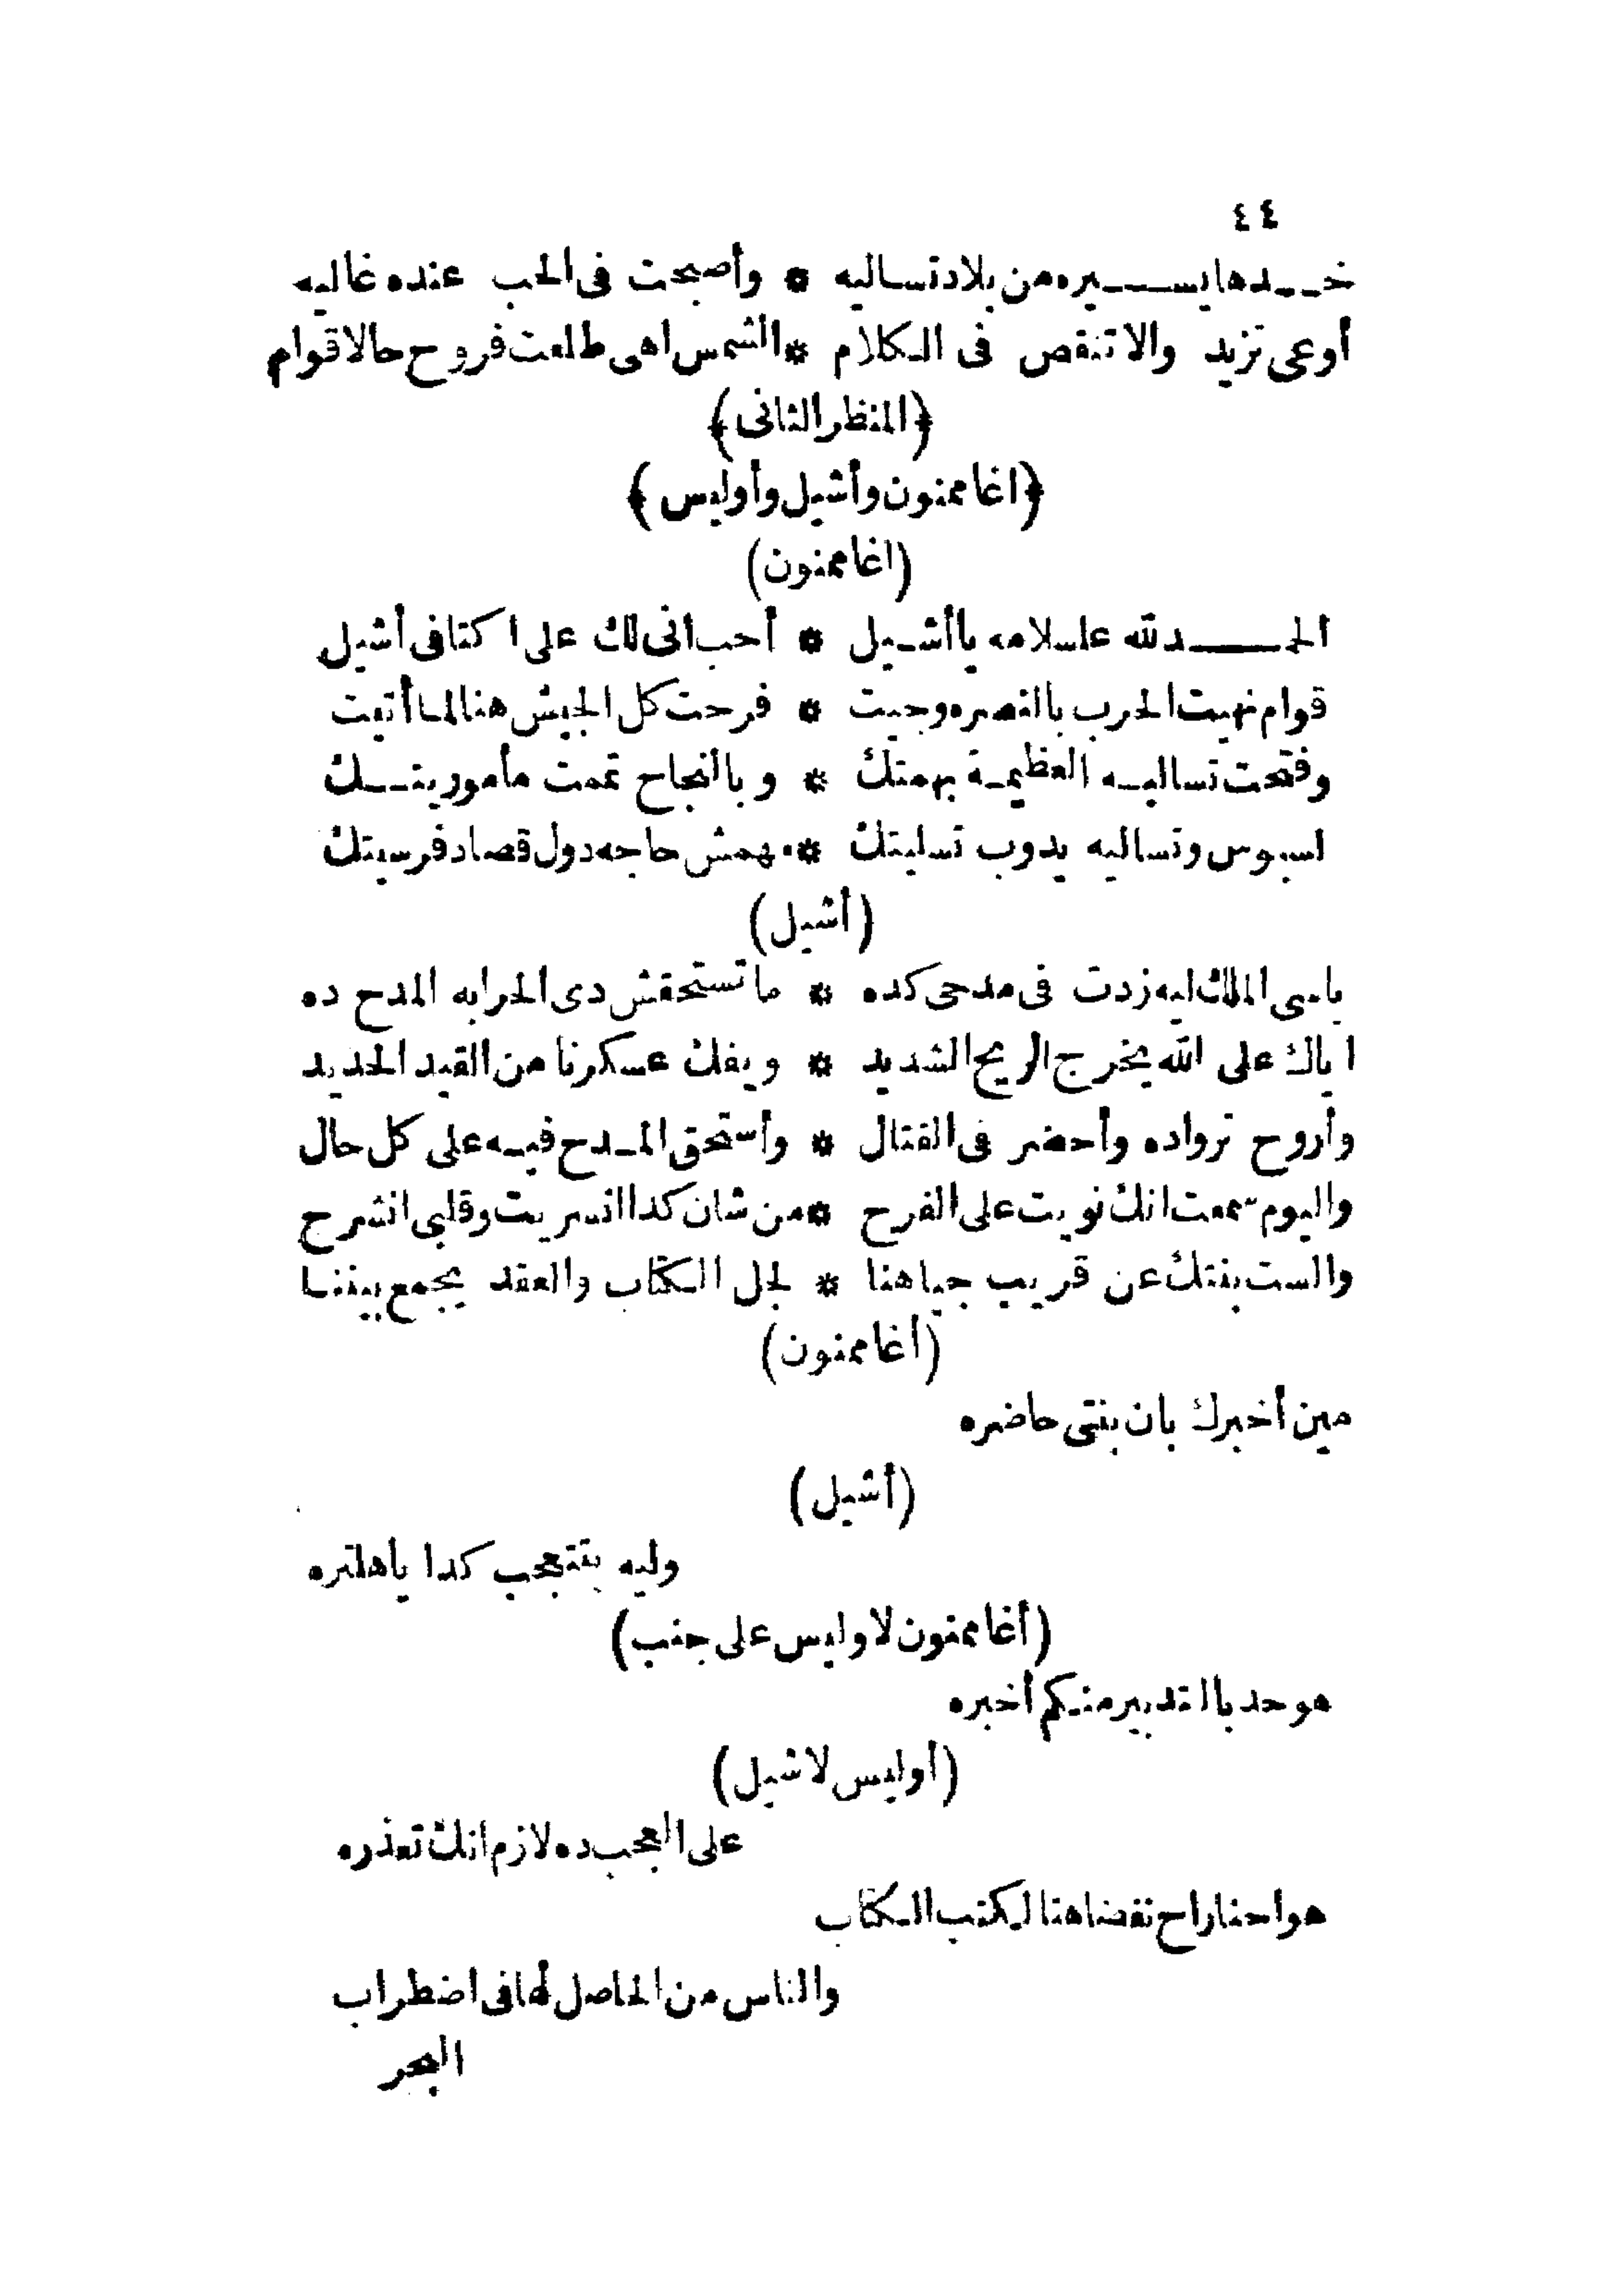 ٤٤
خدها يسيره من بلاد تساليه * وأصبحت فى الحب عنده غاليه
أوعى تزيد والا تنقص فى الكلام * الشمس اهى طلعت فروح حالا قوام
﴿المنظر الثانى﴾
﴿اغاممنون وأشيل وأوليس﴾
(اغاممنون)
الحمد لله عاسلامه يا أشيل * أحب انى لك على اكتافى أشيل
قوام نهيت الحرب بالنصره وجيت * فرحت كل الجيش هنا لما أتيت
وفتحت تساليه العظيمة بهمتك * وبالنجاح تممت مأموريتك
لسبوس وتساليه يدوب تسليتك * مهمش حاجه دول قصاد فرسيتك
(أشيل)
يا سى الملك ليه زدت فى مدحى كده * ما تستحقش دى الحرابه المدح ده
اياك على الله يخرج الريح الشديد * ويفك عسكرنا من القيد الحديد
وأروح ترواده وأحضر فى القتال * وأستحق المدح فيه على كل حال
واليوم سمعت انك نويت على الفرح * من شان كدا انسريت وقلبى انشرح
والست بنتك عن قريب جيا هنا * لجل الكتاب والعقد يجمع بيننا
(أغاممنون)
مين أخبرك بان بنتى حاضره
(أشيل)
وليه بتتعجب كدا يا هلتره
(أغاممنون لاوليس على جنب)
هو حد بالتدبير منكم أخبره
(أوليس لاشيل)
على العجب ده لازم انك تعذره
هو احنا راح نفضا هنا لكتب الكتاب
والناس من الحاصل لها فى اضطراب
البحر